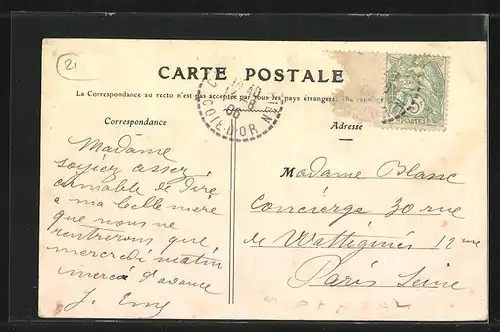 21
CARTE POSTALE
La Correspondance au recto n'est pas acceptée par tous les pays étrangers.
Correspondance
Adresse
COTE-D'OR
06
Madame
soyiez assez
aimable de dire
a ma belle mère
que nous ne
rentrerons que
mercredi matin
merci d'avance
J.
Madame Blanc
Concierge 30 rue
de Wattignies 12me
Paris Seine